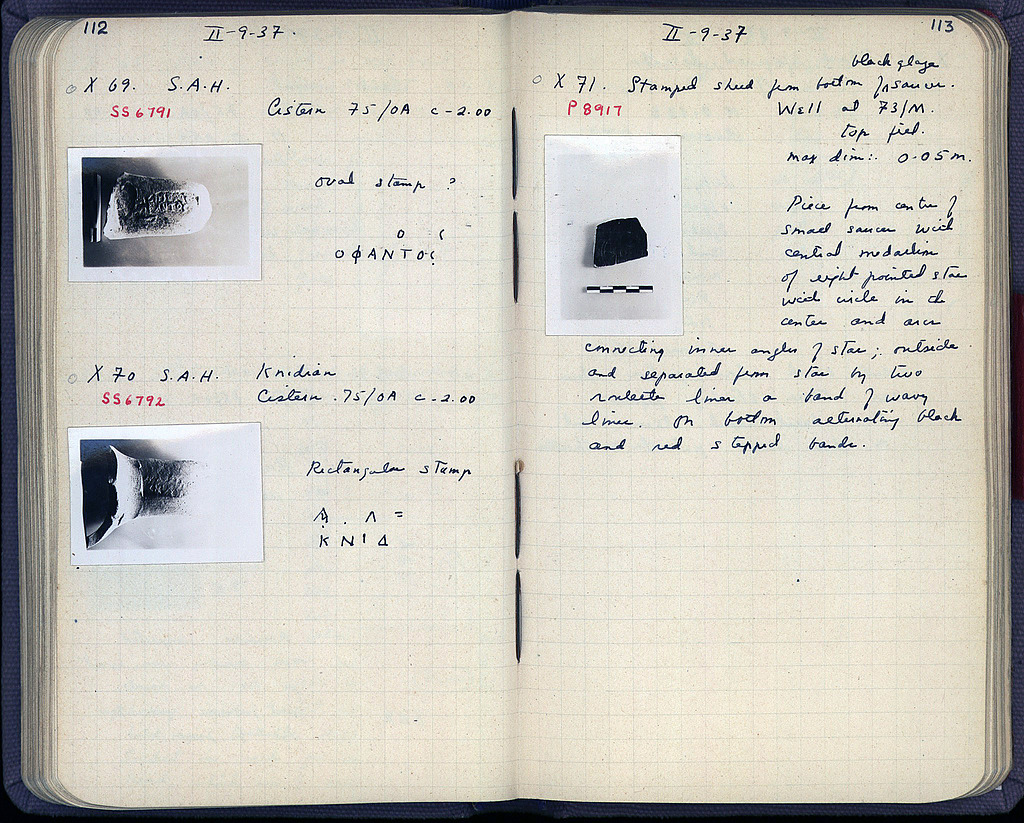 112
II-9-37.
X 69. S.A.H.
SS6791
Cistern 75/OA c-2.00
oval stamp ?
Ο (
ΟΦΑΝΤΟ(
X 70 S.A.H. Knidian
SS6792
Cistern .75/OA c-2.00
Rectangular stamp
Α . Λ =
Κ Ν Ι Δ
113
II-9-37
black glaze
X 71. Stamped sherd from bottom of saucer.
P 8917
Well at 73/M.
top fill.
max dim: 0.05 m.
Piece from centre of
small saucer with
central medallion
of eight pointed star
with circle in the
center and arcs
connecting inner angles of star; outside
and separated from star by two
roulette lines a band of wavy
lines. On bottom alternating black
and red stepped bands.